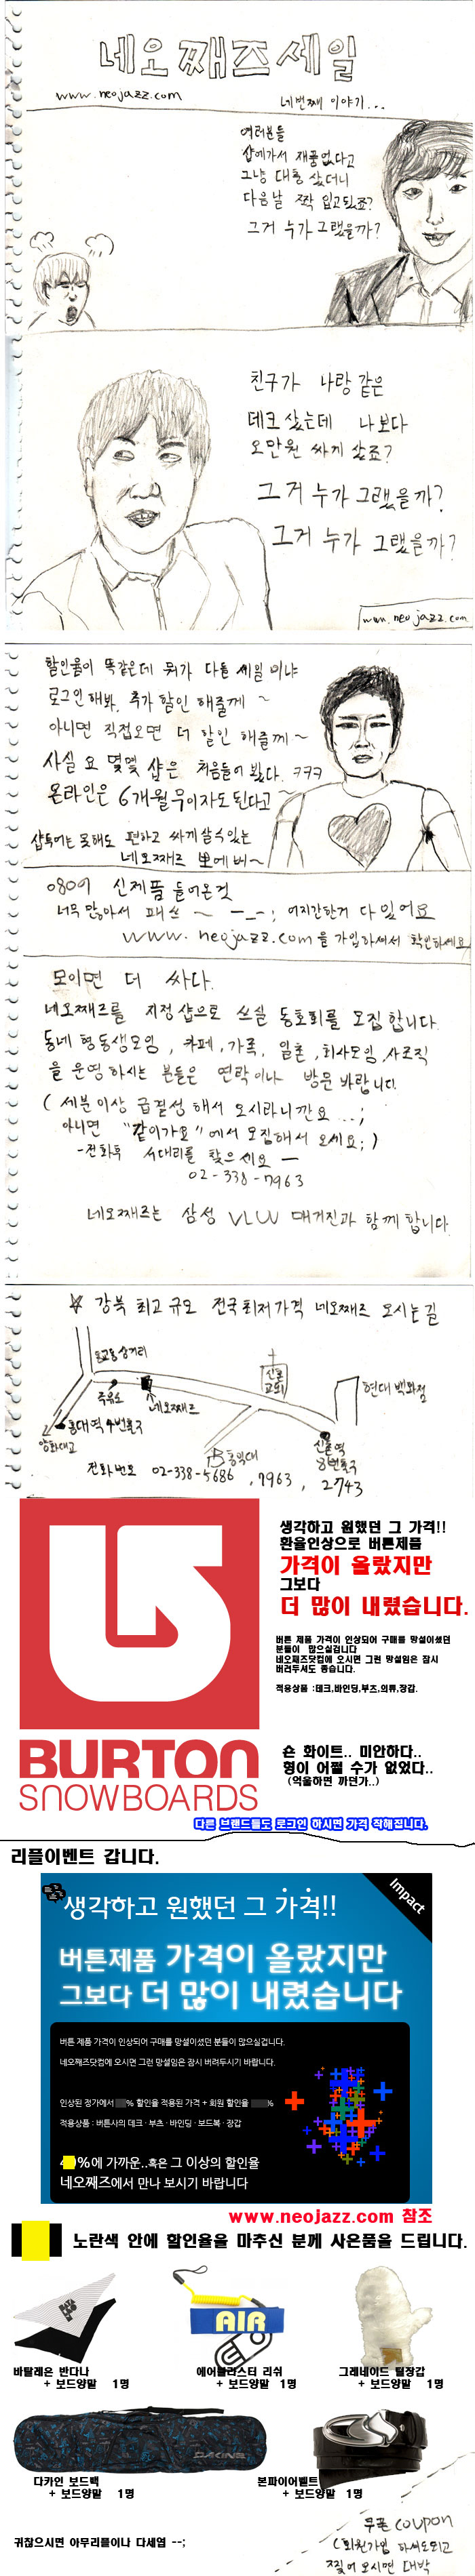 네오째즈세일
www.neojazz.com
네번째 이야기...
여러분들
샵에가서 재품없다고
그냥 대충 샀더니
다음날 쫙 입고되죠?
그거 누가 그랬을까?
친구가 나랑 같은
데크 샀는데 나보다
오만원 싸게 샀죠?
그거 누가 그랬을까?
그거 누가 그랬을까?
www.neojazz.com
할인율이 똑같은데 뭐가 다들 세일이냐
로그인해봐. 추가 할인 해줄께 ~
아니면 직접오면 더 할인 해줄께 ~
사실 요 몇몇 샵은 처음들어 봤다. ㅋㅋㅋ
온라인은 6개월무이자도된다고 ~
샵투어는 못해도 편하고 싸게살수있는
네오째즈 뽀에버~
0809 신제품 들어온것
너무 많아서 패쓰 ~ -_-; 어지간한거 다있어요
www.neojazz.com을 가입하셔서 확인하세요
모이면 더 싸다.
네오째즈를 지정샵으로 쓰실 동호회를 모집합니다.
동네 형동생모임, 카페, 가족, 일촌, 회사모임, 사조직
을 운영하시는 분들은 연락이나 방문 바랍니다.
(세분이상 급결성 해서 오시라니깐요...;
아니면 "같이가요"에서 모집해서 오세요;)
-전화후 서대리를 찾으세요 -
02-338-7963
네오째즈는 삼성 VLUU 매거진과 함께합니다.
강북 최고규모 전국최저가격 네오째즈 오시는길
동교동삼거리
주유소
네오째즈
신촌교회
현대백화점
홍대역 4번출구
양화대교
홍익대
신촌역
전화번호 02-338-5686, 7963, 2743
생각하고 원했던 그 가격!!
환율인상으로 버튼제품
가격이 올랐지만
그보다
더 많이 내렸습니다.
버튼 제품 가격이 인상되어 구매를 망설이셨던
분들이 많으실겁니다
네오째즈닷컴에 오시면 그런 망설임은 잠시
버려두셔도 좋습니다.
적용상품 :데크,바인딩,부츠,의류,장갑.
BURTON
SNOWBOARDS
숀 화이트.. 미안하다..
형이 어쩔 수가 없었다..
(억울하면 까던가..)
다른 브랜드들도 로그인 하시면 가격 착해집니다.
리플이벤트 갑니다.
Impact
생각하고 원했던 그 가격!!
버튼제품 가격이 올랐지만
그보다 더 많이 내렸습니다
버튼 제품 가격이 인상되어 구매를 망설이셨던 분들이 많으실겁니다.
네오째즈닷컴에 오시면 그런 망설임은 잠시 버려두시기 바랍니다.
인상된 정가에서 % 할인을 적용된 가격 + 회원 할인율 %
적용상품 : 버튼사의 데크 · 부츠 · 바인딩 · 보드복 · 장갑
%에 가까운..혹은 그 이상의 할인율
네오째즈에서 만나 보시기 바랍니다
www.neojazz.com 참조
노란색 안에 할인율을 마추신 분께 사은품을 드립니다.
AIR
바탈레온 반다나
+ 보드양말 1명
에어블라스터 리쉬
+ 보드양말 1명
그레네이드 털장갑
+ 보드양말 1명
DAKINE
다카인 보드백
+ 보드양말 1명
본파이어벨트
+ 보드양말 1명
귀찮으시면 아무리플이나 다세염 --;
쿠폰 coupon
(회원가입 하셔도되고
찢어 오시면 대박